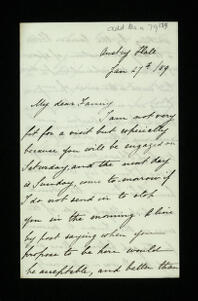 Add Ms a 79
Ansty Hall
Jan 27th /89
My dear Fanny
I am not very
fit for a visit but especially
because you will be engaged on
Saturday, and the next day
is Sunday, come to-morrow if
I do not send in to stop
you in the morning. A line
by post saying when you
propose to be here would
be acceptable, and better than